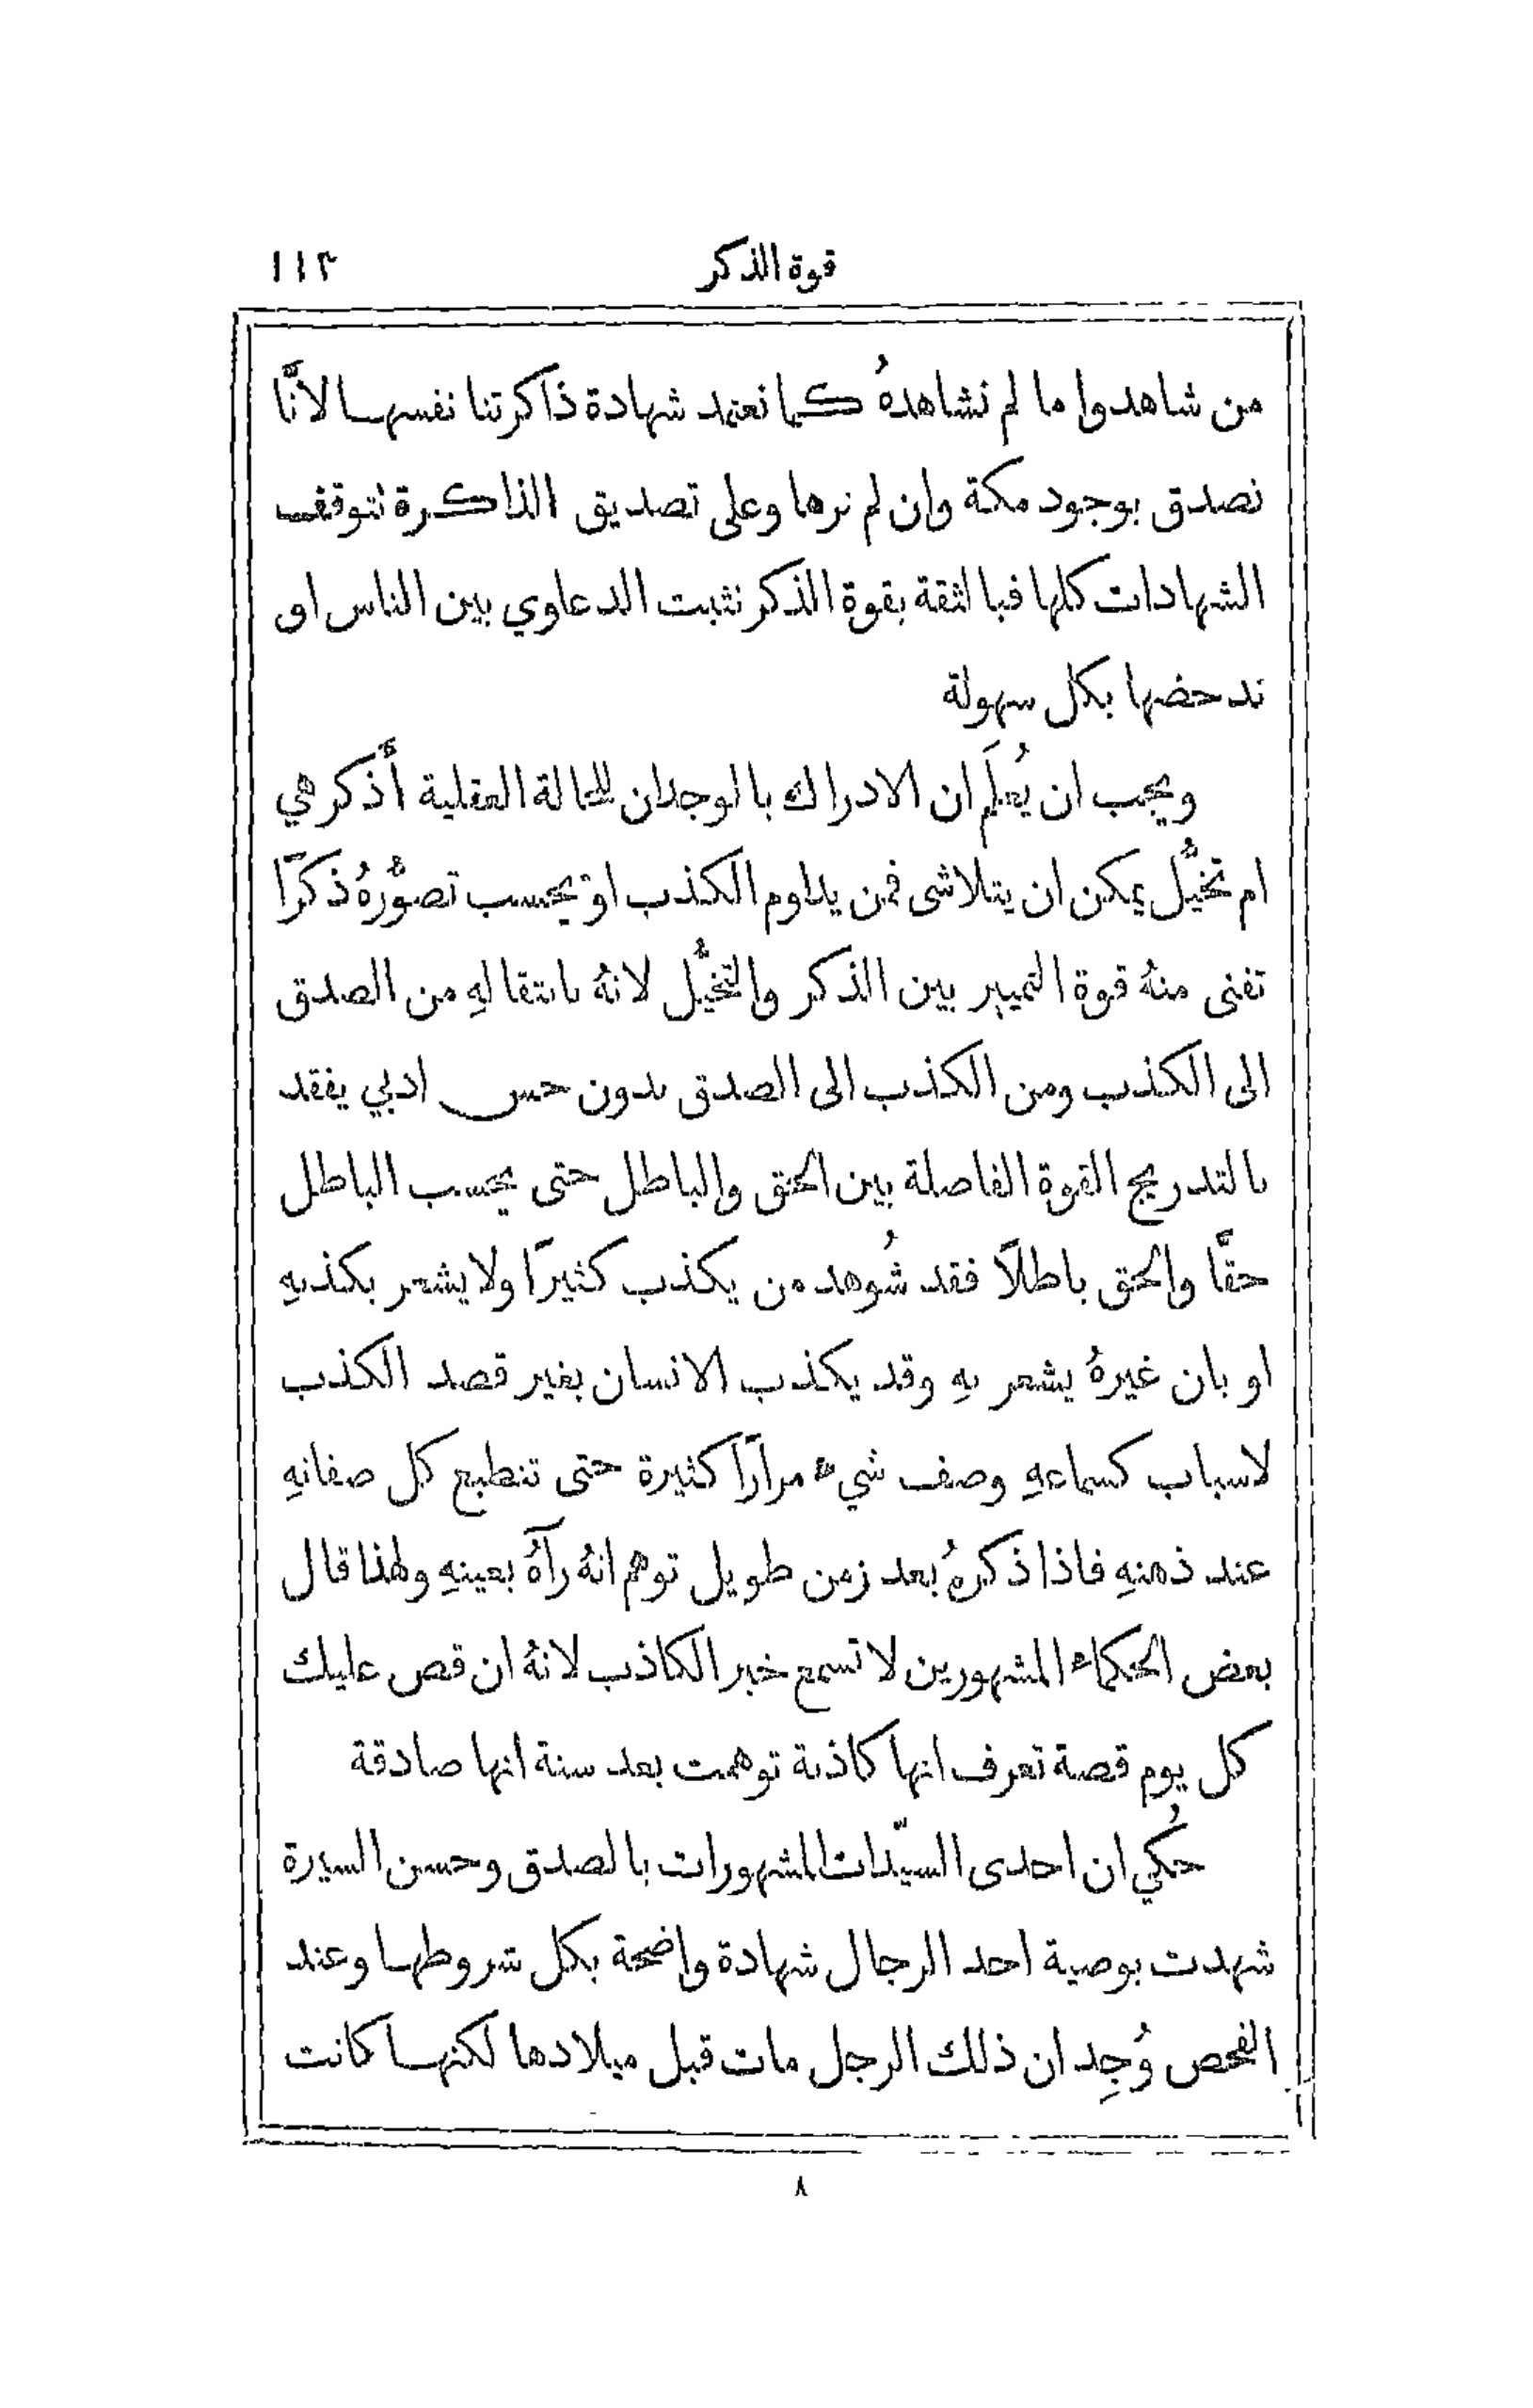 قوة الذكر ١١٣
من شاهدوا ما لم نشاهدهُ كما نعتمد شهادة ذاكرتنا نفسها لانَّا
نصدق بوجود مكة وان لم نرها وعلى تصديق الذاكرة تتوقف
الشهادات كلها فبالثقة بقوة الذكر نثبت الدعاوي بين الناس او
ندحضها بكل سهولة
ويجب ان يُعلَم ان الادراك بالوجدان للحالة العقلية أَذكر هي
ام تخيُّل يمكن ان يتلاشى فمن يداوم الكذب او يحسب تصوُّرهُ ذكرًا
تفنى منهُ قوة التمييز بين الذكر والتخيُّل لانهُ بانتقالهِ من الصدق
الى الكذب ومن الكذب الى الصدق بدون حس ادبي يفقد
بالتدريج القوة الفاصلة بين الحق والباطل حتى يحسب الباطل
حقًّا والحق باطلًا فقد شُوهد من يكذب كثيرًا ولا يشعر بكذبهِ
او بان غيرهُ يشعر بهِ وقد يكذب الانسان بغير قصد الكذب
لاسباب كسماعهِ وصف شيء مرارًا كثيرة حتى تنطبع كل صفاتهِ
عند ذهنهِ فاذا ذكرهُ بعد زمن طويل توهم انهُ رآهُ بعينهِ ولهذا قال
بعض الحكماء المشهورين لا تسمع خبر الكاذب لانهُ ان قص عليك
كل يوم قصة تعرف انها كاذبة توهمت بعد سنة انها صادقة
حُكي ان احدى السيّدات المشهورات بالصدق وحسن السيرة
شهدت بوصية احد الرجال شهادة واضحة بكل شروطها وعند
الفحص وُجِد ان ذلك الرجل مات قبل ميلادها لكنها كانت
٨